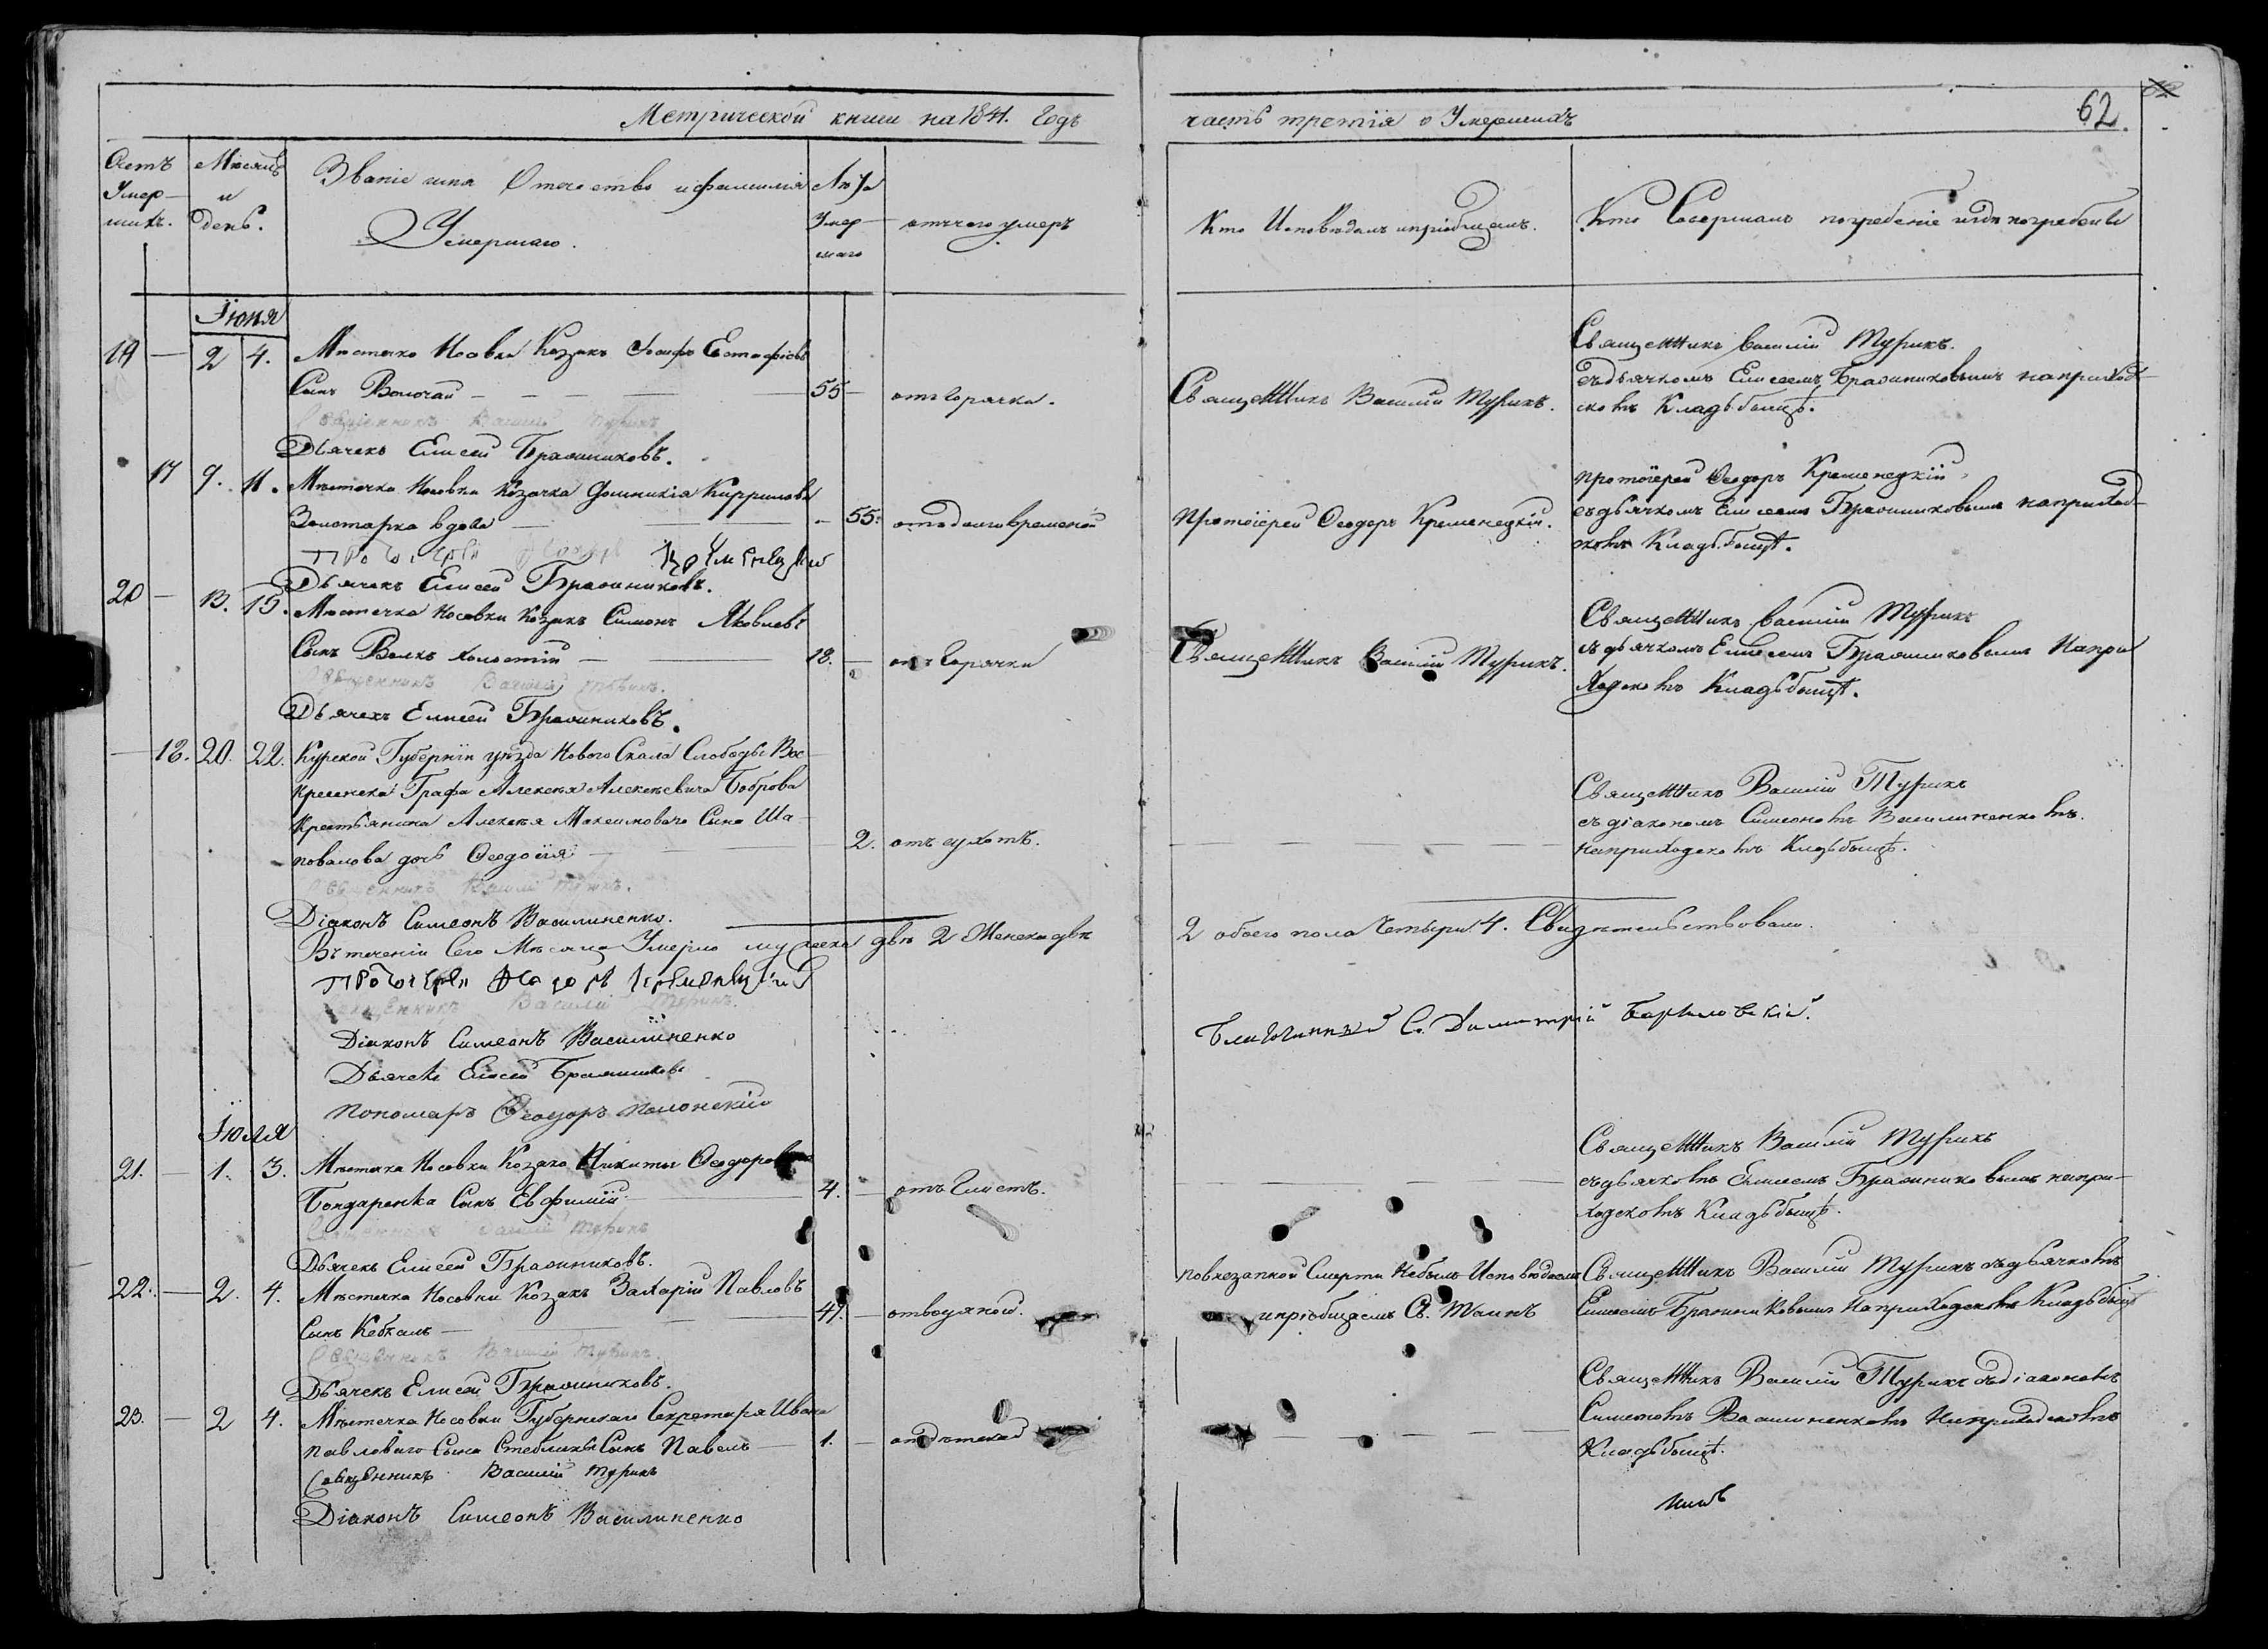 Метрической книги на 1841. Годъ
часть третїя о Умершихъ
62.
Счетъ Умер— шихъ.
Мѣсяцъ и День.
Званіе имя Отечество и фамилія
Умершаго.
Лѣта Умер— шаго
отъ чего умеръ
Кто Исповѣдалъ и пріобщалъ.
Кто Совершалъ погребеніе и гдѣ погребены
Їюня
19 — 2 4. Мѣстечка Носовки Козакъ Іосифъ Евстафіевъ
Сынъ Волочай — 55 — отъ Горячки.
Священникъ Василій Турикъ
Дьячекъ Елисей Браоиниковъ.
Священникъ Василій Турикъ.
Священникъ Василій Турикъ.
съ дьячкомъ Елисеемъ Браоиниковымъ на приход—
скомъ Кладьбищѣ.
17 9. 11. Мѣстечка Носовки Козачка Домникія Кириллова
Золотарка вдова — 55. отъ долговременой
Протоіерей Феодоръ Кременецкій
Дьячекъ Елисей Браоиниковъ.
Протоїерей Ѳеодоръ Кременецкій.
Протоїерей Ѳеодоръ Кременецкїй
съ дьячкомъ Елисеемъ Браоиниковымъ на приход—
скомъ Кладьбищѣ.
20 — 13. 15. Мѣстечка Носовки Козакъ Симонъ Яковлевъ
Сынъ Волкъ холостій — 18. — отъ Горячки
Священникъ Василій Турикъ.
Дьячекъ Елисей Браоиниковъ.
Священникъ Василій Турикъ.
Священникъ Василій Турикъ
съ дьячкомъ Елисеемъ Браоиниковымъ На при
Ходскомъ Кладьбищѣ.
— 18. 20. 22. Курской Губернїи уѣзда Нового Скола Слободы Вос—
кресенска Графа Алексѣя Алексѣевича Боброва
Крестьянина Алексѣя Максимоваго Сына Ша—
повалова дочь Ѳеодосія — 2. отъ сухотъ.
Священникъ Василій Турикъ.
Діаконъ Симеонъ Василиненко.
Священникъ Василій Турикъ
съ діакономъ Симеономъ Василиненкомъ.
на приходскомъ Кладьбищѣ.
Въ теченіи Сего Мѣсяца Умерло мужеска двѣ 2 Женска двѣ
2 обоего пола Четыри 4. Свидѣтельствовали.
Протоіерей Феодоръ Кременецкій
Священникъ Василій Турикъ.
Діаконъ Симеонъ Василиненко
Дьячекъ Елисей Браоиниковъ
Пономаръ Ѳеодоръ Полонскій
Благочинный С. Димитрій
Їюля
21. — 1. 3. Мѣстечка Носовки Козака Никиты Ѳеодорова
Бондаренка Сынъ Евфимїй — 4. — отъ Глистъ.
Священникъ Василій Турикъ
Дьячекъ Елисей Браоиниковъ.
Священникъ Василій Турикъ
съ дьячкомъ Елисеемъ Браоиниковымъ на при—
ходскомъ Кладьбищѣ.
22. — 2. 4. Мѣстечка Носовки Козакъ Захарій Павловъ
Сынъ Кебкалъ — 47. — отводяной.
Священникъ Василій Турикъ.
Дьячекъ Елисей Браоиниковъ.
По внезапной Смерти Небылъ Исповѣдаемъ
и пріобщаемъ С. Таинъ
Священникъ Василій Турикъ съ дьячкомъ
Елисеемъ Браоиниковымъ На приходскомъ Кладьбищѣ
23. — 2 4. Мѣстечка Носовки Губернскаго Секретаря Ивана
Павловаго Сына Стеблины Сынъ Павелъ — 1. — отдѣтской
Священникъ Василій Турикъ
Діаконъ Симеонъ Василиненко
Священникъ Василій Турикъ съ діакономъ
Симеономъ Василиненкомъ На приходскомъ
Кладьбищѣ.